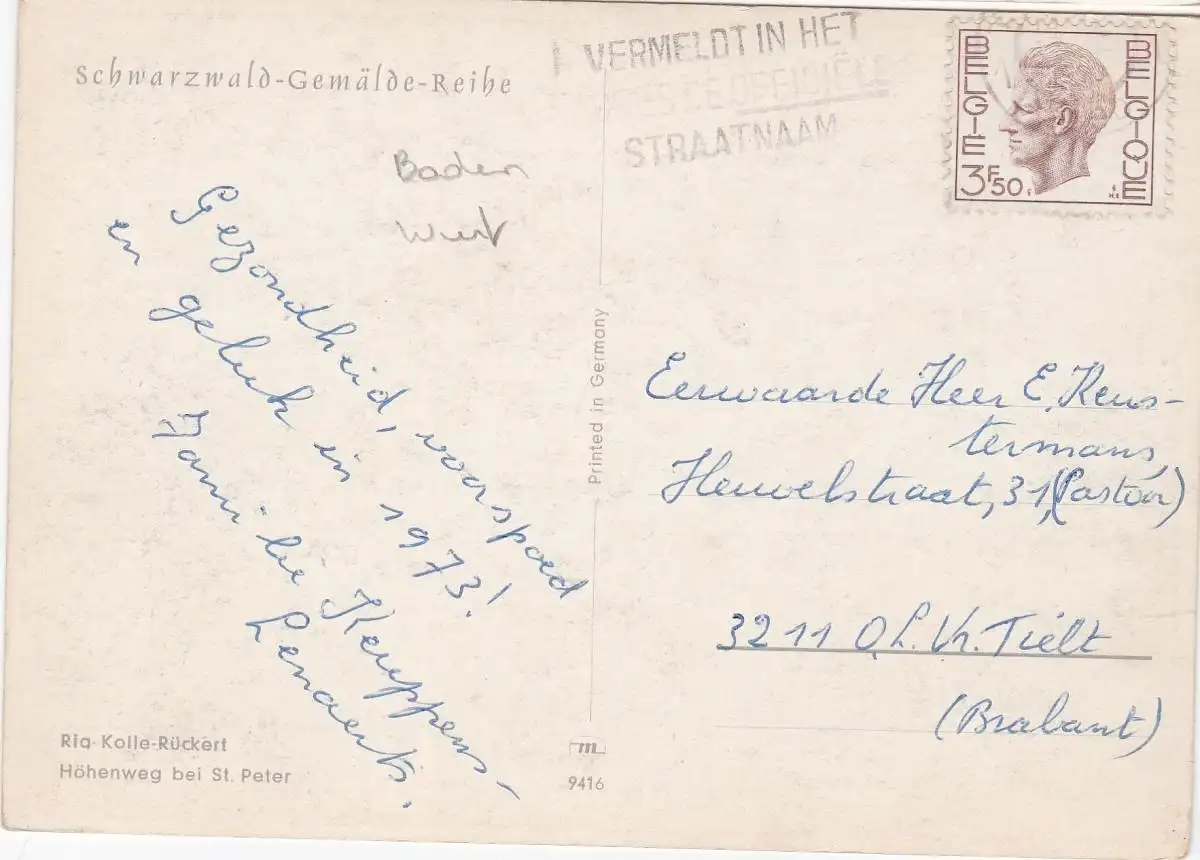 Schwarzwald-Gemälde-Reihe
VERMELDT IN HET
OFFICIËLE
STRAATNAAM
BELGIE
BELGIQUE
3F50
Baden
Wurt
Gezondheid, voorspoed
en geluk in 1973!
Familie Keuppens-
Lenaerts.
Printed in Germany
Eerwaarde Heer E. Keus-
termans,
Heuvelstraat, 31, (Pastoor)
3211 O.L.Vr. Tielt
(Brabant)
Ria Kolle-Rückert
Höhenweg bei St. Peter
m
9416